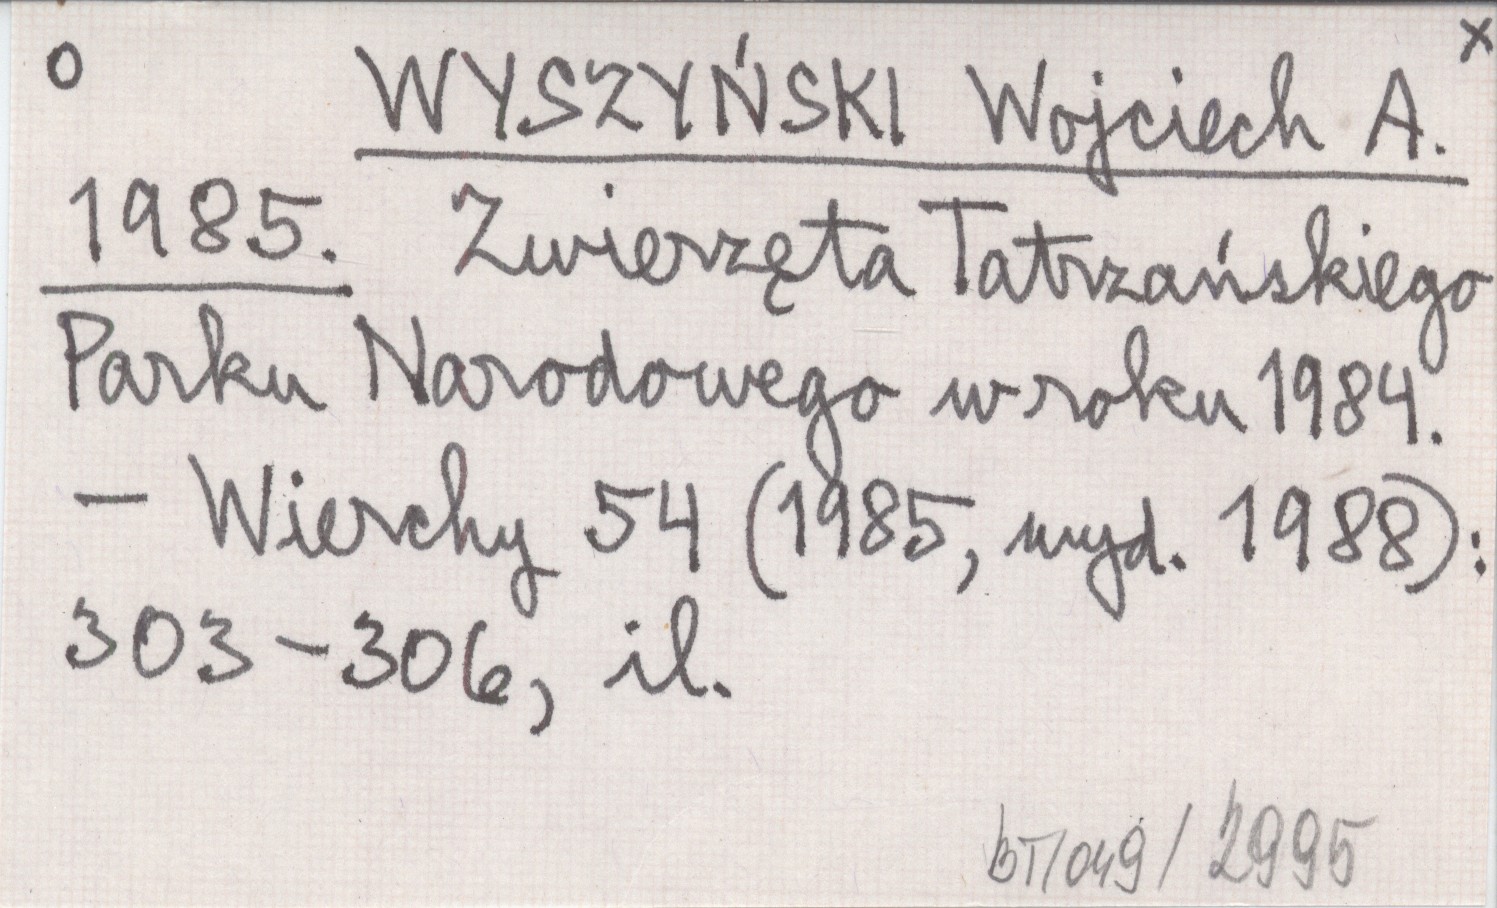 o x
WYSZYŃSKI Wojciech A.
1985. Zwierzęta Tatrzańskiego
Parku Narodowego w roku 1984.
– Wierchy 54 (1985, wyd. 1988):
303–306, il.
BT/049/2995